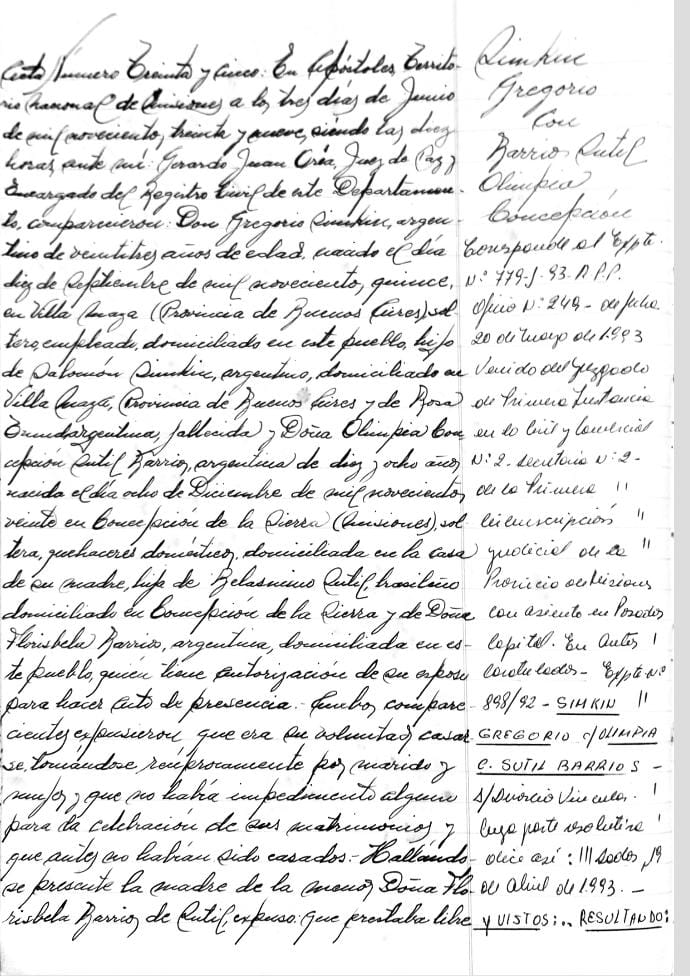 Acta Número Treinta y cinco: En Apóstoles, Territo-
rio Nacional de Misiones a los tres días de Junio
de mil novecientos treinta y nueve, siendo las diez
horas, ante mi: Gerardo Juan Juez de Paz y
Encargado del Registro Civil de este Departamen-
to, comparecieron: Don Gregorio Simkin, argen-
tino de veintitres años de edad, nacido el día
diez de Septiembre de mil novecientos quince,
en Villa Maza (Provincia de Buenos Aires), sol-
tero, empleado, domiciliado en este pueblo, hijo
de Salomón Simkin, argentino, domiciliado en
Villa Maza, (Provincia de Buenos Aires y de Rosa
argentina, fallecida y Doña Olimpia Con-
cepción Sutil Barrios, argentina de diez y ocho años
nacida el día ocho de Diciembre de mil novecientos
veinte en Concepción de la Sierra (Misiones), sol-
tera, quehaceres domésticos, domiciliada en la casa
de su madre, hija de Belasmino Sutil, brasileño
domiciliado en Concepción de la Sierra y de Doña
Florisbela Barrios, argentina, domiciliada en es-
te pueblo, quien tiene autorización de su esposo
para hacer acto de presencia.- Ambos compare-
cientes expusieron que era su voluntad casar-
se, tomándose, recíprocamente por marido y
mujer y que no había impedimento alguno
para la celebración de sus matrimonios y
que antes no habían sido casados.- Hallándo-
se presente la madre de la menor Doña Flo-
risbela Barrios de Sutil, expuso: que prestaba libre
Simkin
Gregorio
Con
Barrios Sutil
Olimpia
Concepción
Corresponde al Expte.
N° 779-J-93. R.P.P.
Oficio N° 249- de fecha
20 de Mayo de 1993
Venido del Juzgado
de Primera Instancia
en lo Civil y Comercial
N° 2- Secretaria N° 2-
de la Primera "
Circunscripción "
Judicial de la "
Provincia de Misiones
con asiento en Posadas
Capital. En Autos
Caratulados- Expte N°
898/92 - SIMKIN "
GREGORIO c/OLIMPIA
C. SUTIL BARRIOS -
s/Divorcio Vincular.
Cuya parte resolutiva
dice así: ///sadas, 19
de Abril de 1993.-
Y VISTOS:.. RESULTANDO: